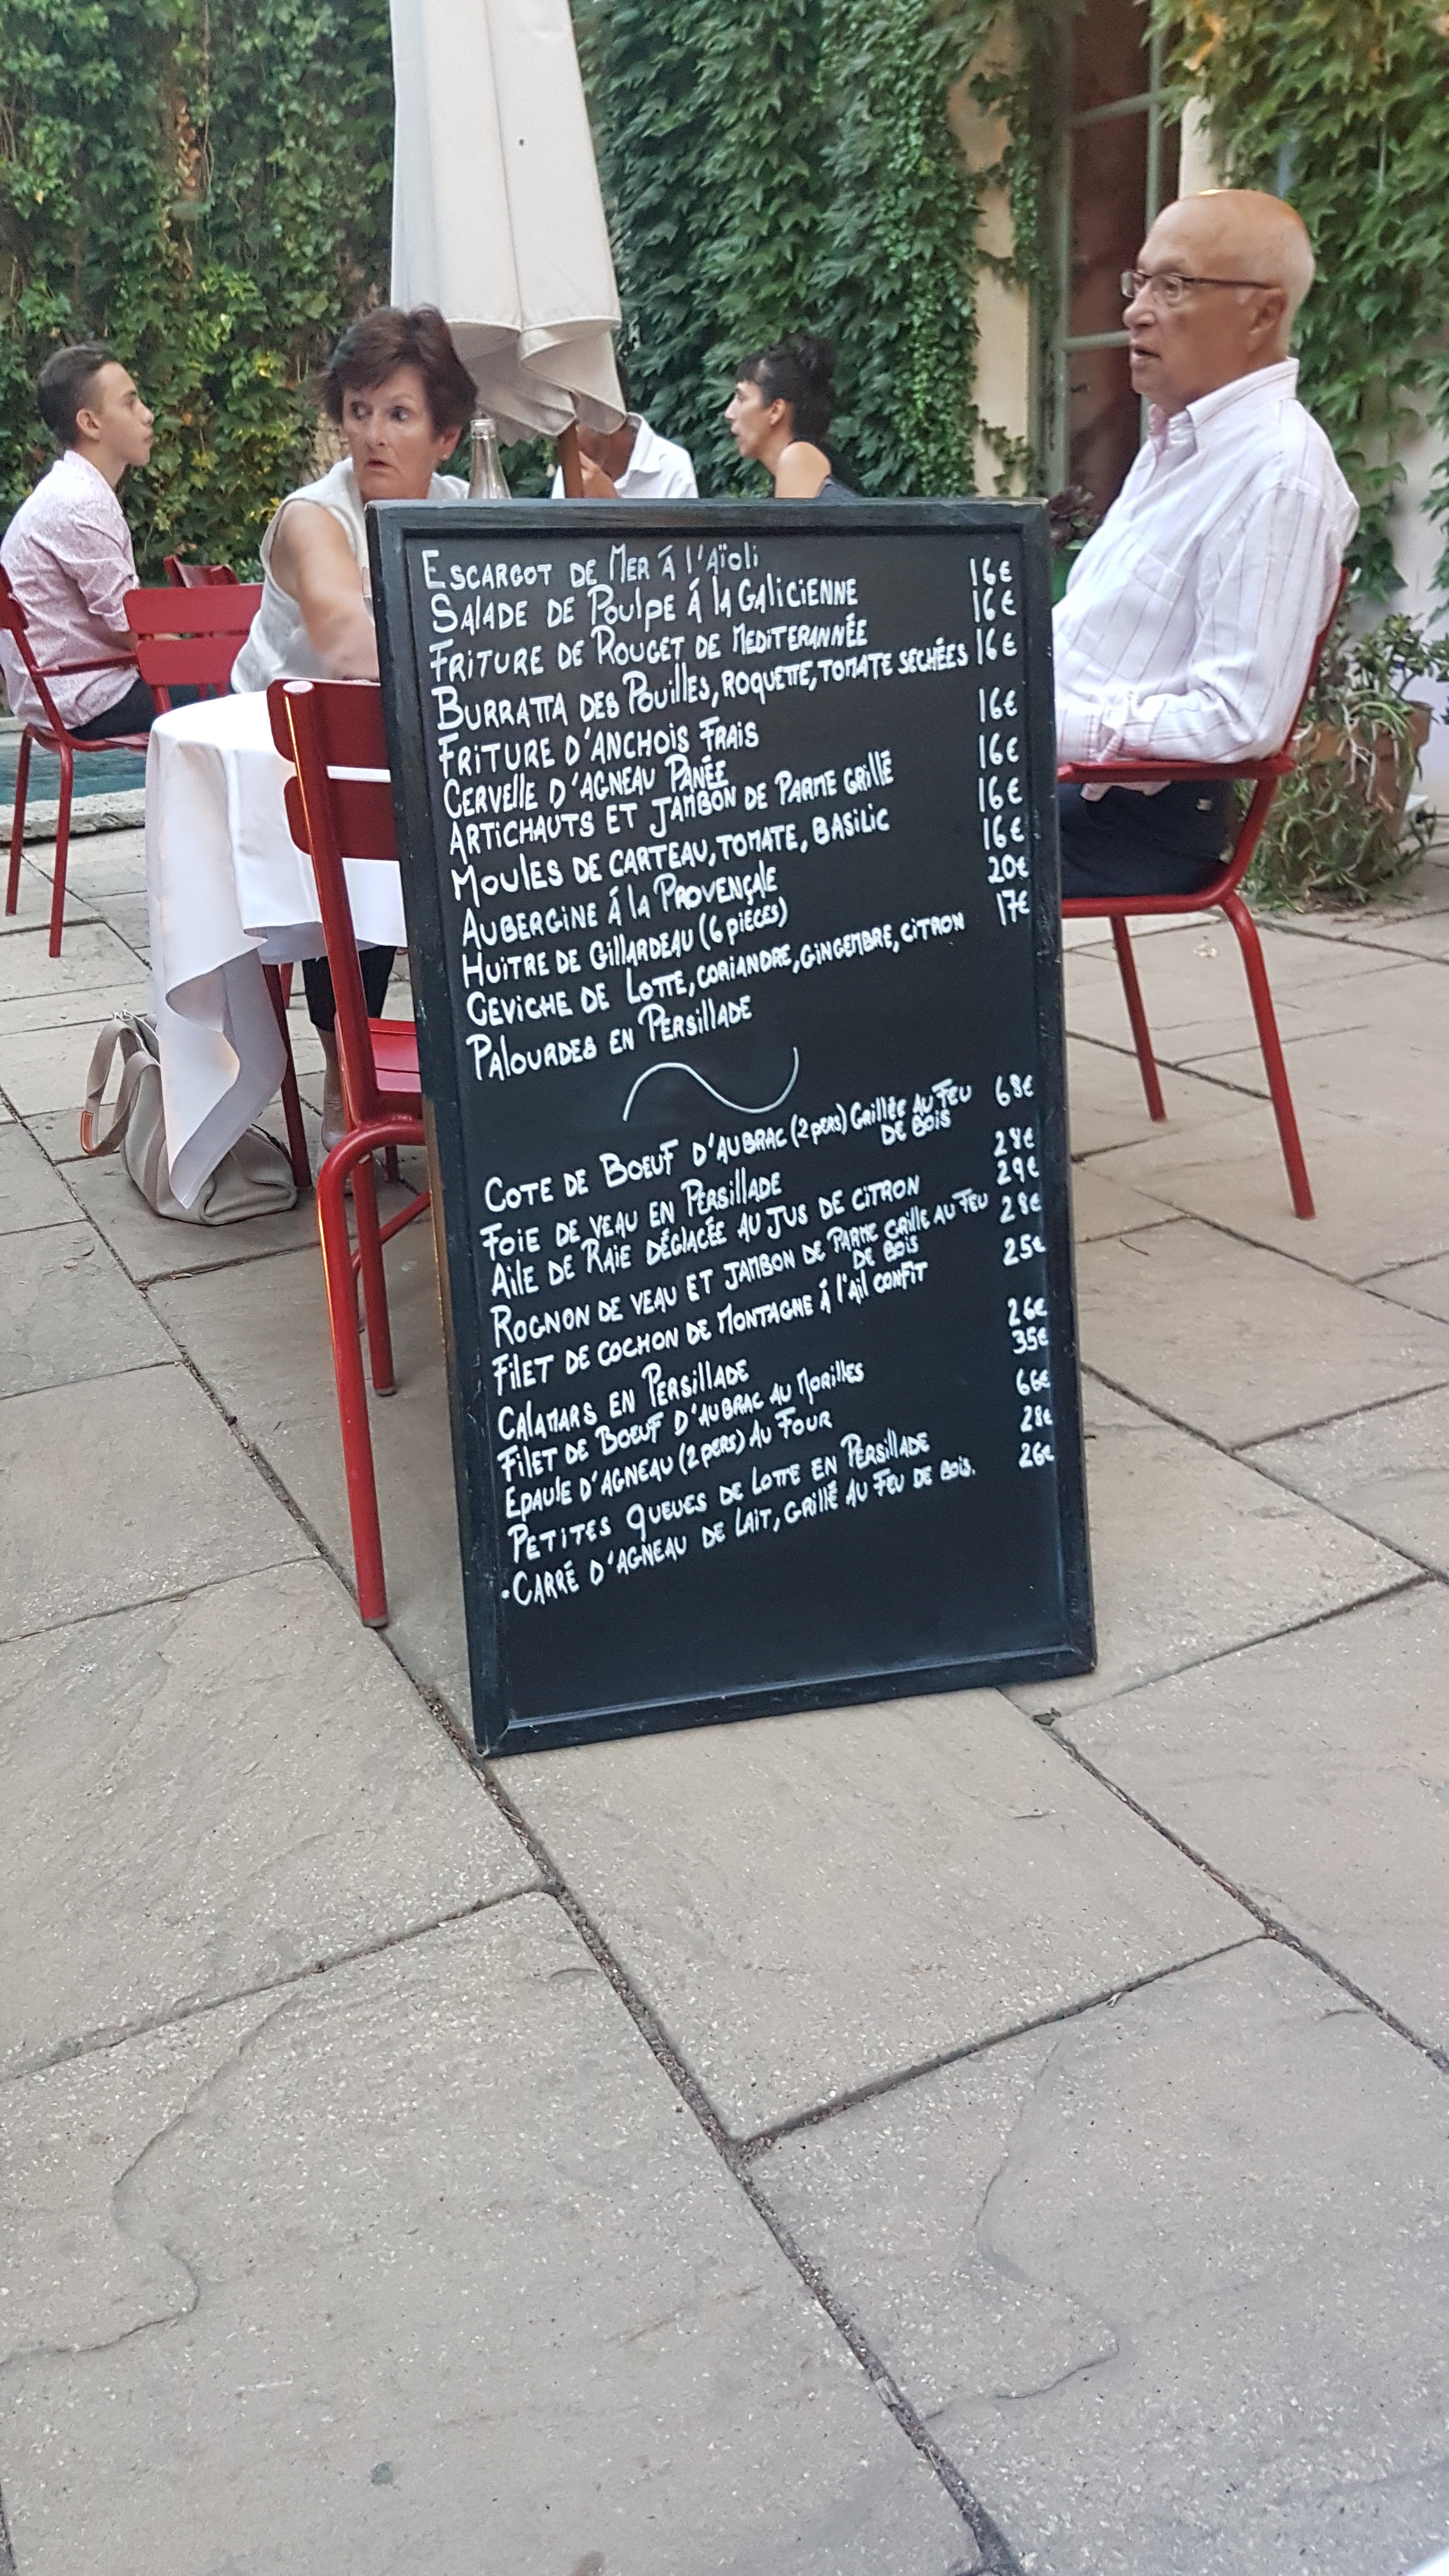 Escargot de Mer á l'Aïoli
Salade de Poulpe á la Galicienne
Friture de Rouget de Mediterannée
Burratta des Pouilles, roquette, tomate sechées
Friture d'anchois frais
Cervelle d'agneau panée
Artichauts et jambon de Parme grillé
Moules de Carteau, tomate, basilic
Aubergine á la Provençale
Huitre de Gillardeau (6 pièces)
Ceviche de Lotte, coriandre, gingembre, citron
Palourdes en Persillade
16€
16€
16€
16€
16€
16€
16€
20€
17€
Cote de Boeuf d'Aubrac (2 pers) Grillée au feu
de bois
Foie de veau en Persillade
Aile de Raie déglacée au jus de citron
Rognon de veau et jambon de Parme grillé au feu
de bois
Filet de cochon de Montagne á l'ail confit
Calamars en Persillade
Filet de Boeuf d'Aubrac au Morilles
Epaule d'agneau (2 pers) au Four
Petites queues de Lotte en Persillade
•Carré d'agneau de lait, grillé au feu de bois.
68€
28€
29€
28€
25€
26€
35€
66€
28€
26€